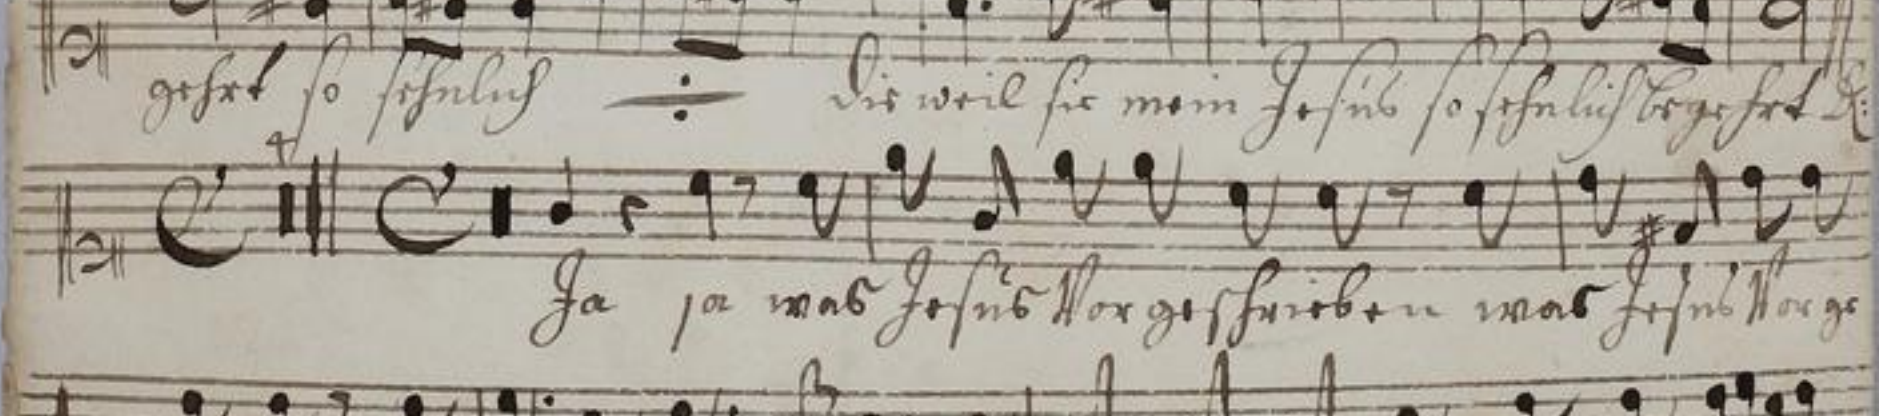 gehrt so sehnlich die weil sie mein Jesus so sehnlich begehrt
4
Ja ja was Jesus Vorgeschrieben was Jesus Vorge